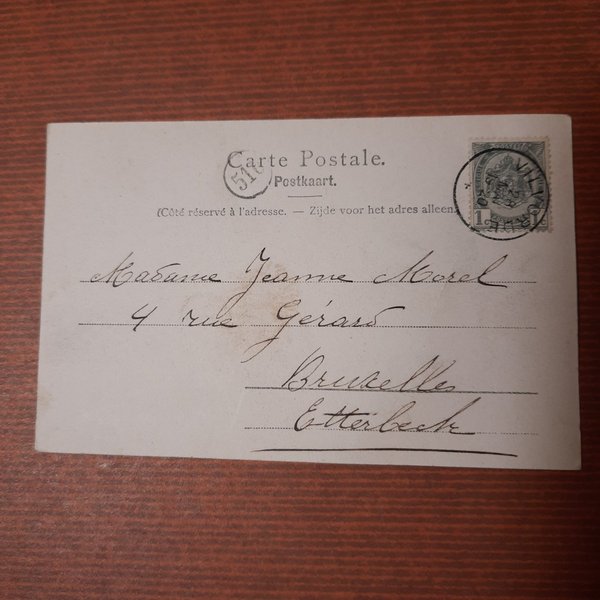 Carte Postale.
Postkaart.
(Côté réservé à l'adresse. — Zijde voor het adres alleen.
1
1
Madame Jeanne Morel
4 rue Gérard
Bruxelles
Etterbeek